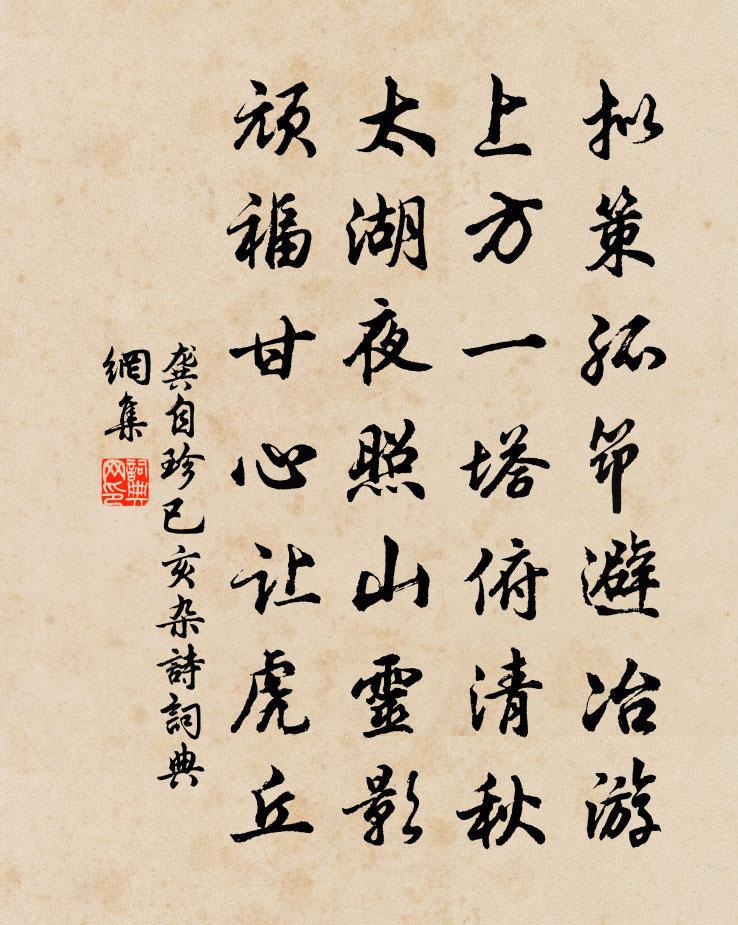 拟策孤筇避冶游
上方一塔俯清秋
太湖夜照山靈影
顽福甘心让虎丘
龔自珍己亥杂詩詞典
網集
詞典
网印